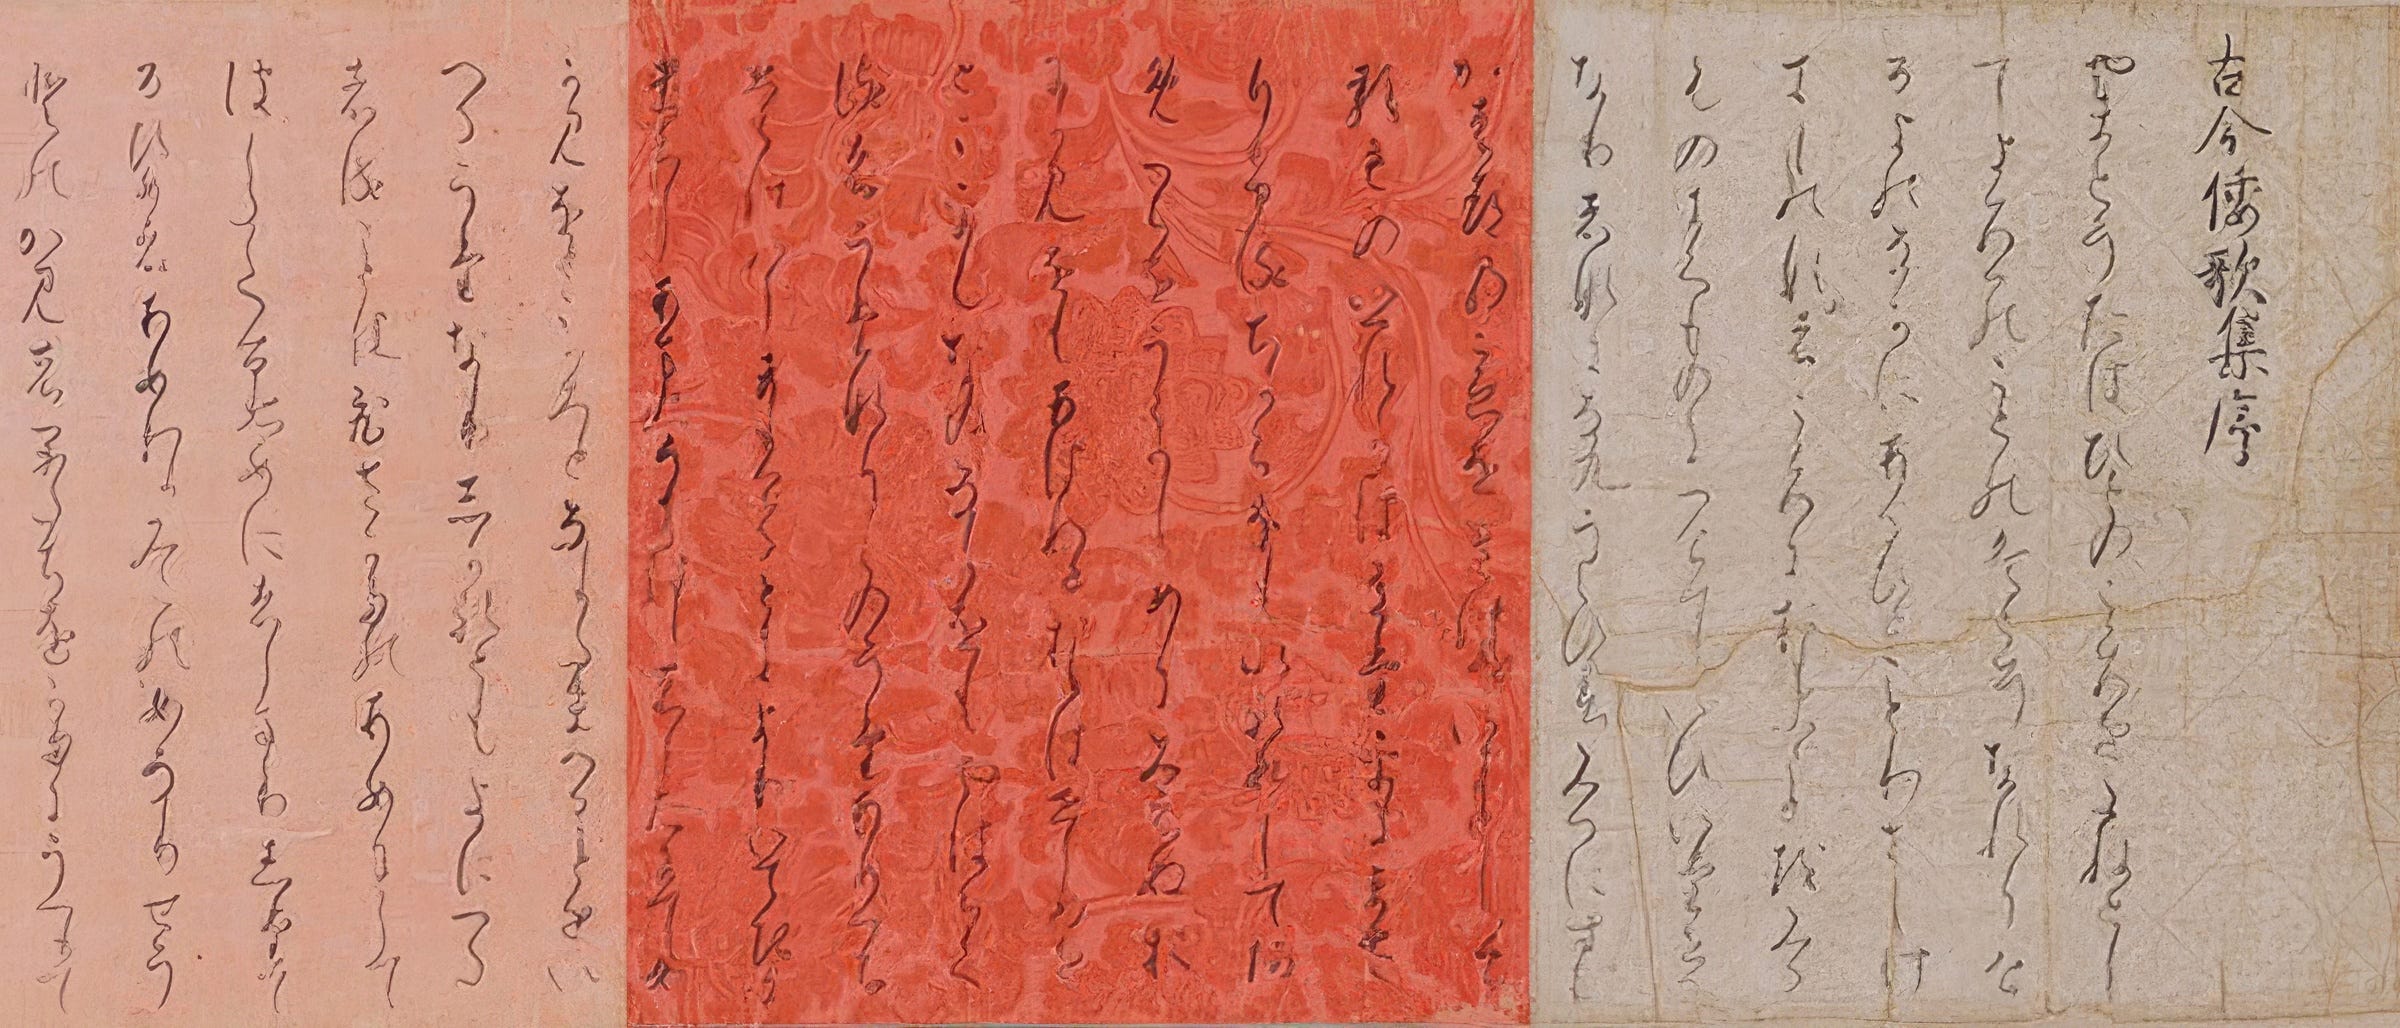 古今倭歌集序
やまとうたはひとのこころをたねとし
てよろつのことのはとそなれりけ
るよのなかにあるひとことわさしけ
きものなれはこころにおもふことをみる
ものきくものにつけていひいたせる
なりはなになくうくひすみつにすむ
かはつのこゑをきけはいきとしいけ
るものいつれかうたをよまさ
りけるちからをもいれすしてあ
めつちをうこかしめにみえぬお
にかみをもあはれとおもはせをと
ここをむなのなかをもやはらく
るはうたなりこのうたあめつち
ひらけはしまりけるときよりいてきに
けりあまのうきはしのしたにてめ
かみをかみとなりたまへることをい
へるうたなりしかあれともよにつた
はることはひさかたのあめにして
はしたてるひめにはしまりしたて
るひめとはあめわかみこのめなりせう
とのかみのかたちをかたににうつりて